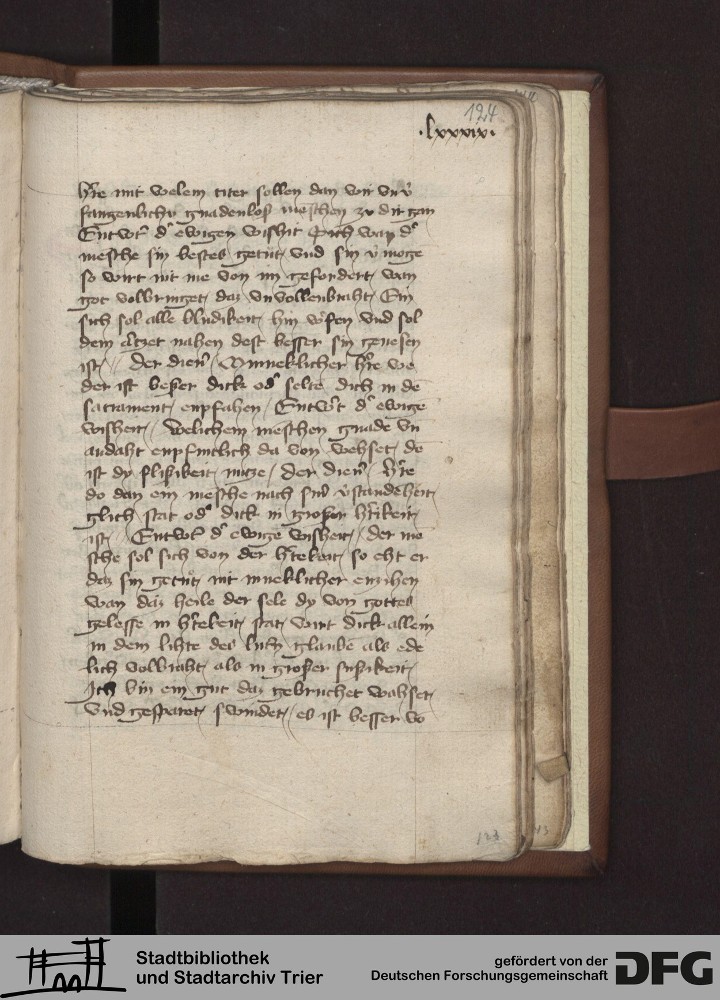 124
·lxxxix·
h're mit welem titer sollen dan wir
fangenlichn gnadenloß meschen zu dir gan
Entwo't d' ewigen wißhit Sich wan d'
mesche sin bestes getut, vnd sin v'moge
so wirt nit me von im gefordert, wan
got volbringet, daz vnvollenbraht, Ein
sich sol alle bludikeit, hin w'fen vnd sol
dem artzet nahen dest besser sin genesen
ist, der dien', Minneklicher h're we
der ist beßer dick od' selte dich in de
sacrament, enpfahen, Entwo't d' ewige
wisheit, welichem meschen gnade vn
andaht enpfintlich da von wehset, de
ist dy flißikeit, nutze, der dien', h're
do dan ein mesche nach sin' v'standeheit,
glich stat od' dick in großer h'tikeit,
ist, Entwot d' ewige wisheit, der me
sche sol sich von der h'tekeit, so eht er
daz sin getut, nit inneklicher enzihen
wan daz heile der sele dy von gottes
gelesse in h'tekeit, stat, wirt dick allein
in dem lihte des lut'n glaube als ede
lich volbraht, als in großer sußikeit,
Ich bin ein gut daz gebruchet wahset,
vnd gesparet, swindet, es ist besser vo
123
43
Stadtbibliothek
und Stadtarchiv Trier
gefördert von der
Deutschen Forschungsgemeinschaft
DFG